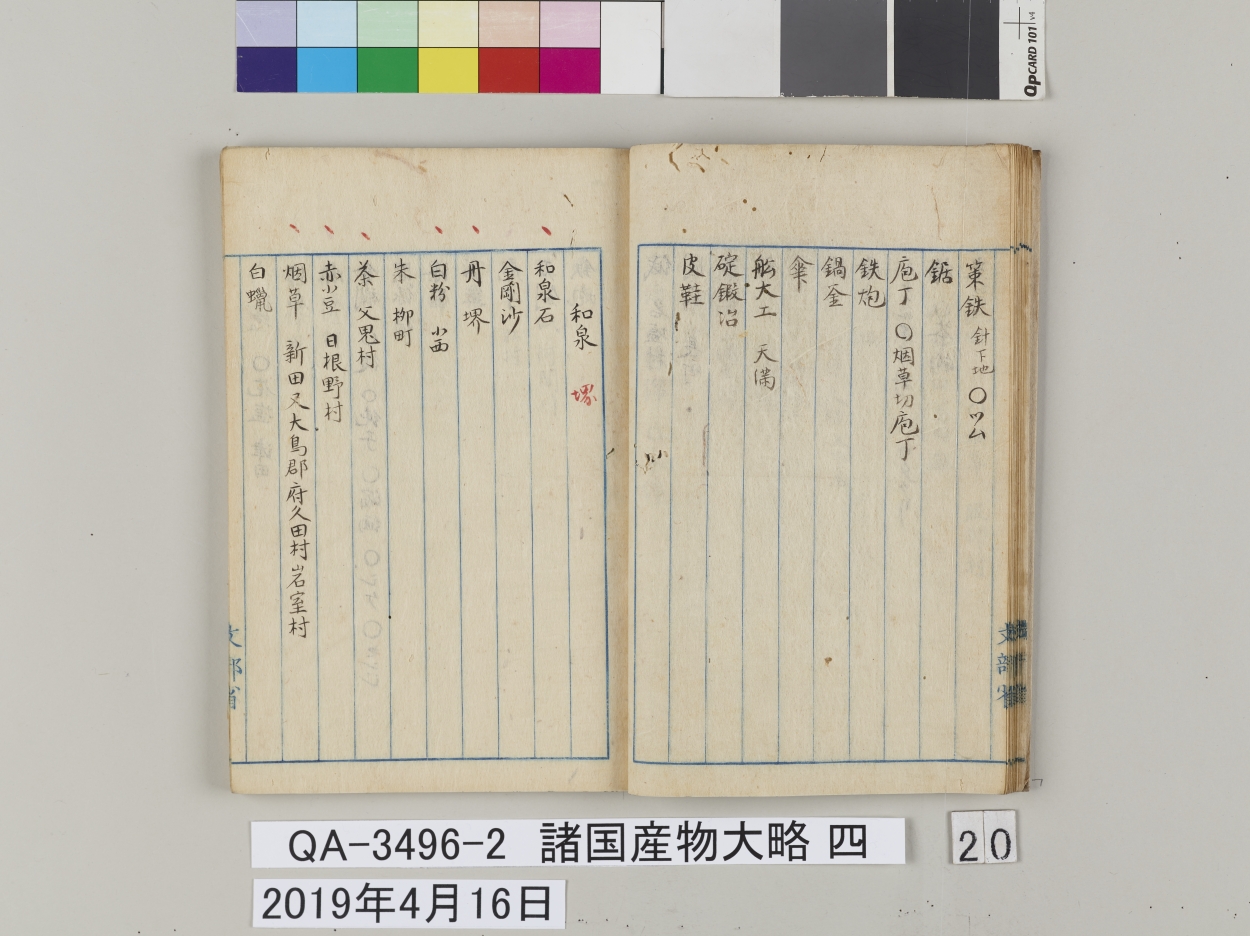 QpCARD 101 v4
策鉄 針下地 〇ツム
鋸
庖丁 〇烟草切庖丁
鉄炮
鍋釜
傘
舩大工 天満
碇鍛冶
皮鞋
文部省
和泉 堺
和泉石
金剛沙
丹 堺
白粉 小西
朱 柳町
茶 父鬼村
赤小豆 日根野村
烟草 新田又大鳥郡府久田村岩室村
白蠟
文部省
QA-3496-2 諸国産物大略 四
20
2019年4月16日